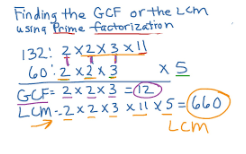 Finding the GCF or the LCM
using Prime factorization
132: 2 × 2 × 3 × 11
60: 2 × 2 × 3 × 5
GCF = 2 × 2 × 3 = 12
LCM = 2 × 2 × 3 × 11 × 5 = 660
LCM